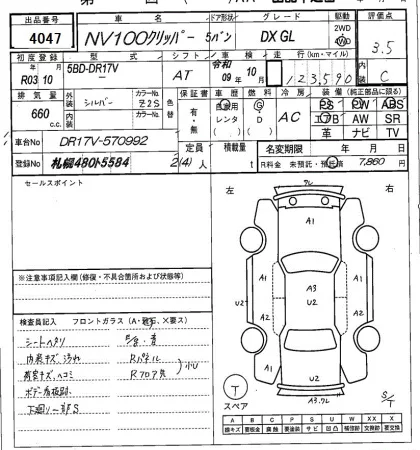 出品番号 車名 ドア形状 グレード 駆動 評価点
4047 NV100クリッパー 5バン DX GL 2WD 3.5
初度登録 型式 シフト 車検 走行(km・マイル) 内装
R03年 10月 5BD-DR17V AT 令和 09年 10月 123,590 C
排気量 外装 カラーNo. 色替 保証書 車歴 燃料 冷房 装備(純正部品に限る)
660 c.c. シルバー Z2S 有・無 自家用 レンタ G D AC PS PW ABS
内装 カラーNo. エアB AW SR
革 ナビ TV
車台No DR17V-570992 定員 積載量 名変期限 年 月 日
登録No 札幌480ち5584 2(4)人 t R料金 未預託・預託済 7,860円
セールスポイント
左 右
フレ
A1
A1 A1
A2 A3 A2
U2 U2 U2
U2
A3.フレ
T
スペア
S/T
※注意事項記入欄(修復・不具合箇所および状態等)
検査員記入 フロントガラス(A・飛石、×要ス)
シートヘタリ
内装キズ、汚れ Rパネル
荷室キズ、ヘコミ Rフロア先 小U
ボデー看板跡
下廻り一部S
A B C P S U W XX X
線キズ 要板金 腐食 要塗装 サビ 凹凸 補修跡 交換跡 要交換